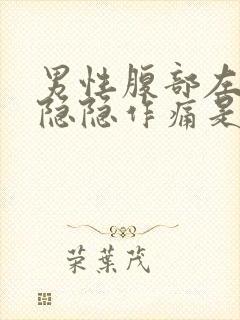 男性腹部左
隐隐作痛是
荣葉茂